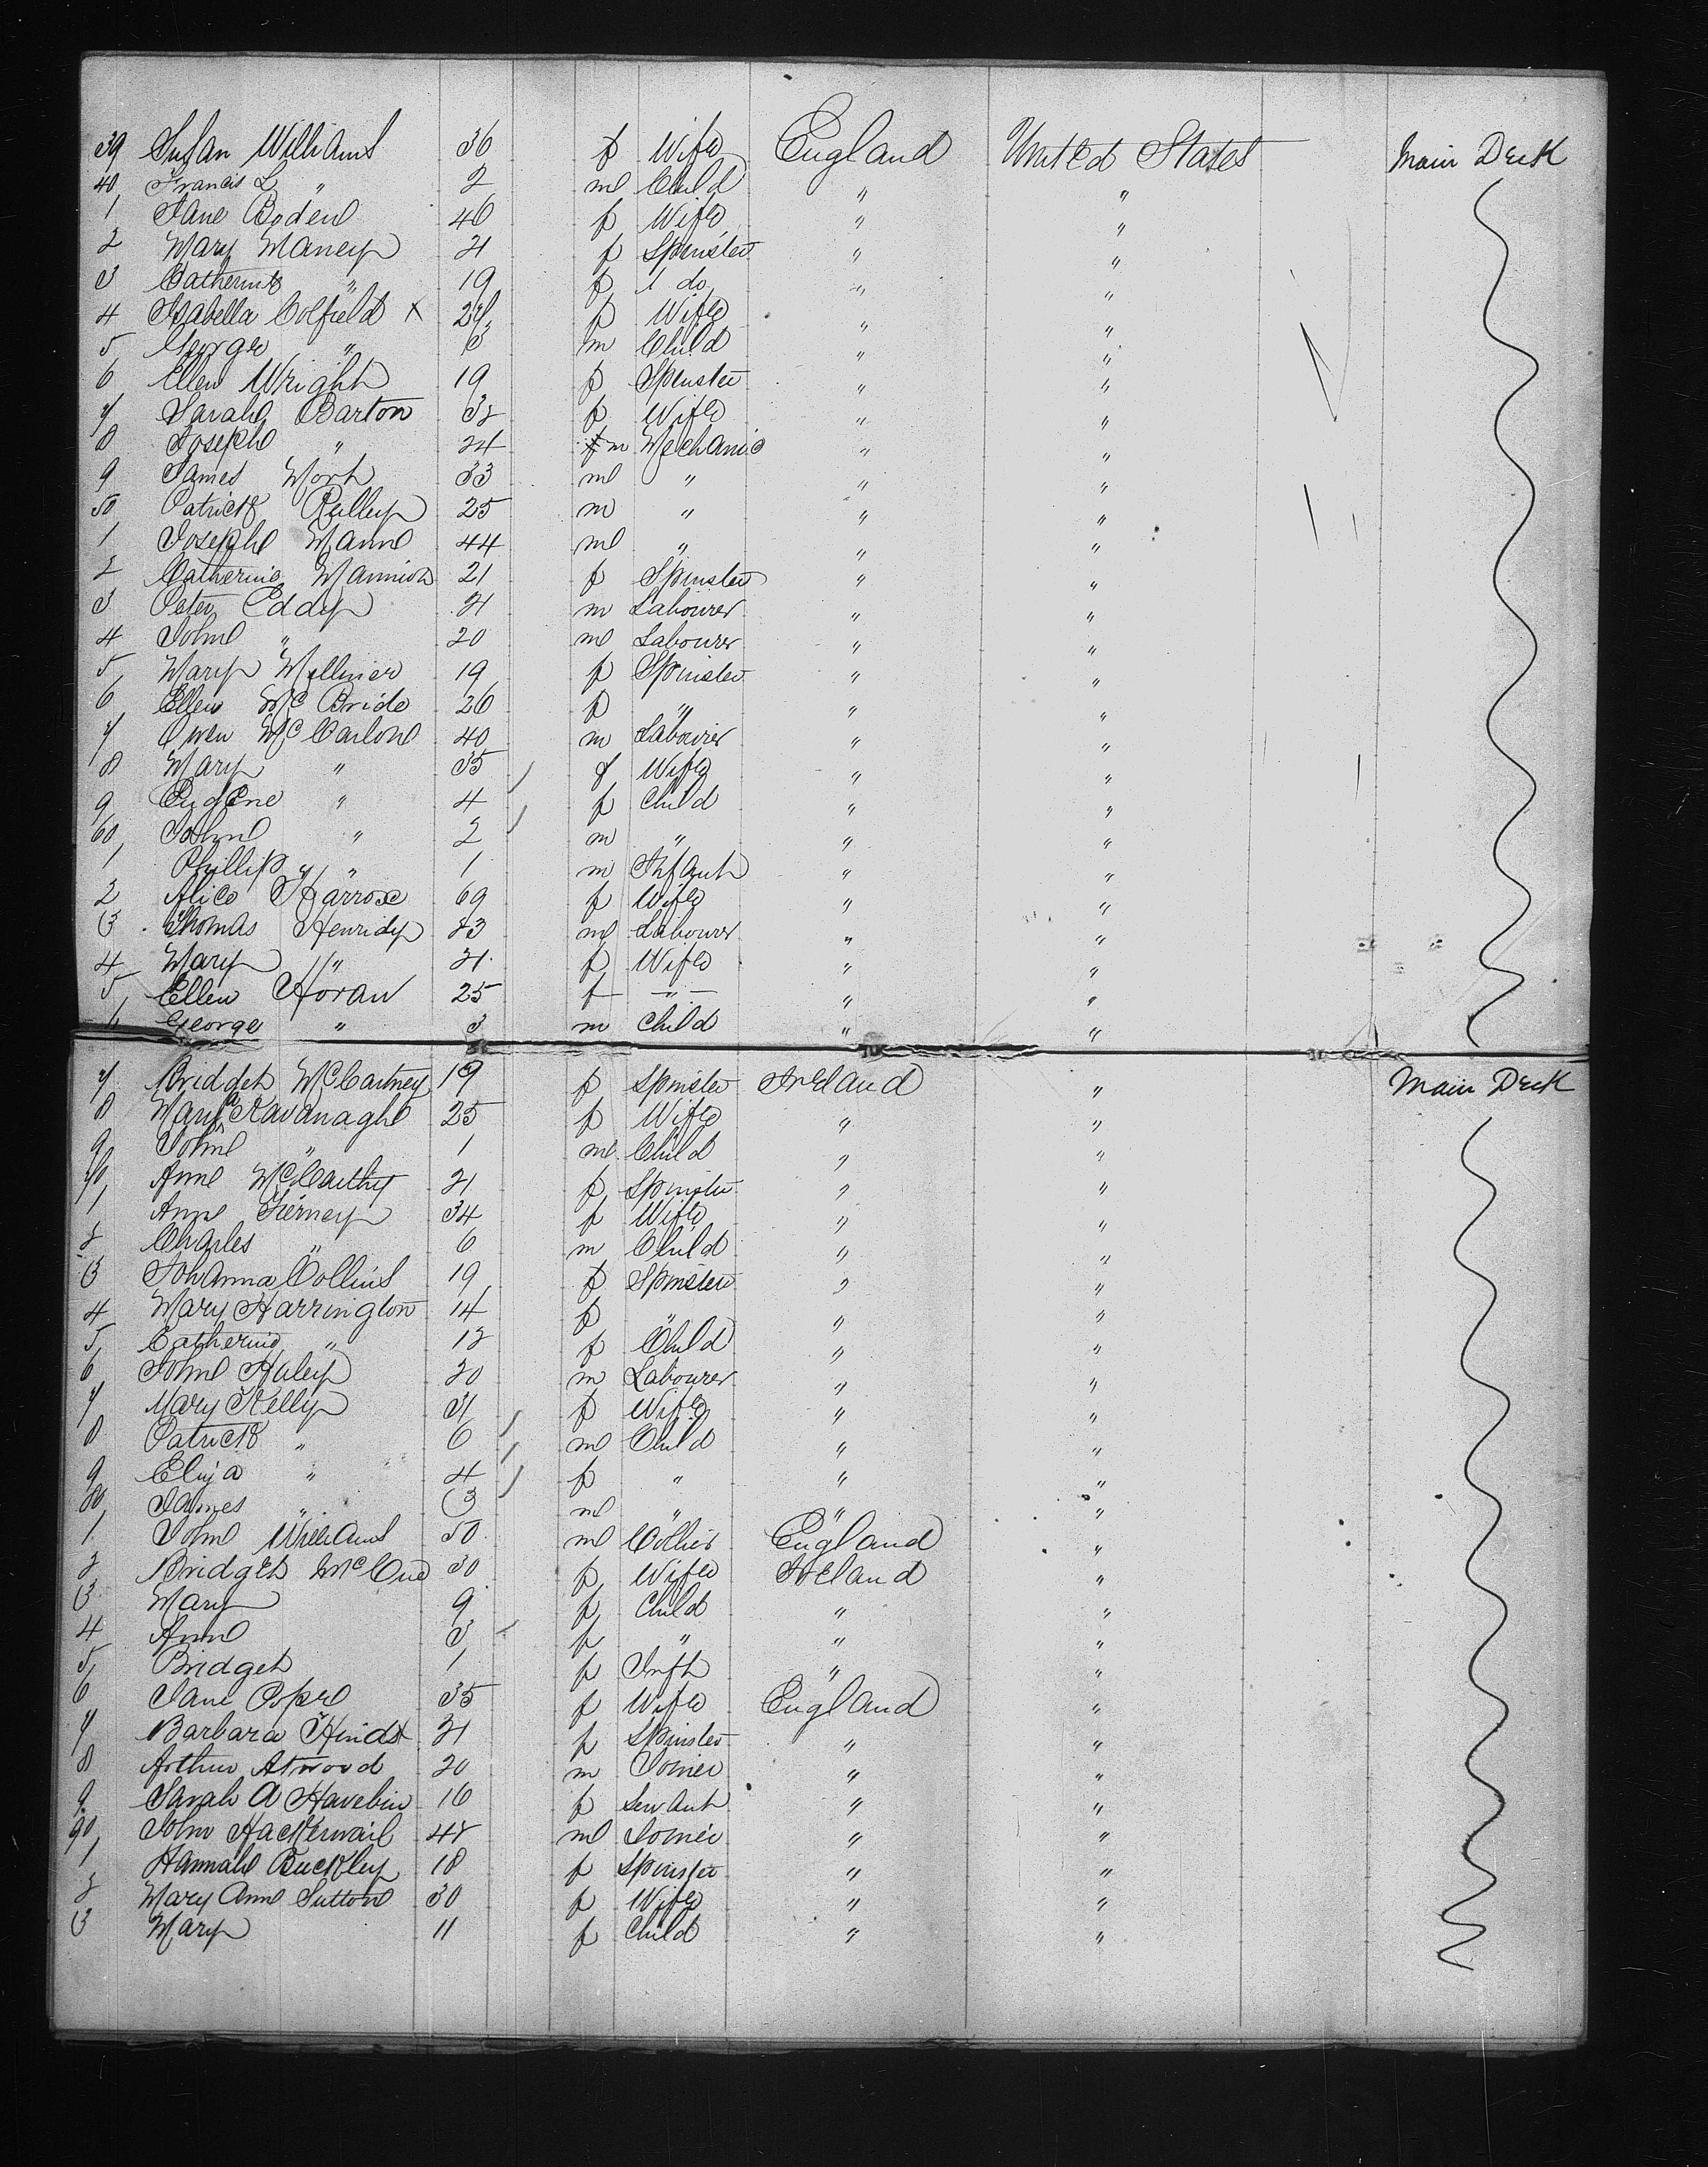 39 Susan Williams 36 f Wife England United States Main Deck
40 Francis L " 2 m Child " "
1 Jane Boden 40 f Wife " "
2 Mary Maney 21 f Spinster " "
3 Catherine " 19 f do " "
4 Isabella Colfield x 24 f Wife " "
5 George " 3 m Child " "
6 Ellen Wright 19 f Spinster " "
7 Sarah Barton 32 f Wife " "
8 Joseph " 24 m Mechanic " "
9 James Worth 33 m " " "
50 Patrick Reilley 25 m " " "
1 Joseph Mann 44 m " " "
2 Catherine Mannion 21 f Spinster " "
3 Peter Eddy 21 m Labourer " "
4 John " 20 m Labourer " "
5 Mary 19 f Spinster " "
6 Ellen McBride 26 f " " "
7 Owen McCarlone 40 m Labourer " "
8 Mary " 35 f Wife " "
9 Eugene " 4 f Child " "
60 John " 2 m " " "
1 Phillip " 1 m Infant " "
2 Alice 69 f Wife " "
3 Thomas Henridy 23 m Labourer " "
4 Mary " 21 f Wife " "
5 Ellen Horan 25 f " " "
6 George " 3 m Child " "
7 Bridget McCartney 19 f Spinster Ireland " Main Deck
8 Mary a Kavanagh 25 f Wife " "
9 John " 1 m Child " "
70 Anne McCarthy 21 f Spinster " "
1 Anne Tierney 34 f Wife " "
2 Charles " 6 m Child " "
3 Johanna Collins 19 f Spinster " "
4 Mary Harrington 14 f " " "
5 Catherine " 12 f Child " "
6 John Haley 20 m Labourer " "
7 Mary Kelly 31 f Wife " "
8 Patrick " 6 m Child " "
9 Eliza " 4 f " " "
80 James " 3 m " " "
1 John Williams 50 m Collier England "
2 Bridget McCue 30 f Wife Ireland "
3 Mary 9 f Child " "
4 Anne 3 f " " "
5 Bridget 1 f Inft " "
6 Jane Pope 35 f Wife England "
7 Barbara Hinds 21 f Spinster " "
8 Arthur Atwood 20 m Joiner " "
9 Sarah A 16 f Servant " "
90 John 48 m Joiner " "
1 Hannah Buckley 18 f Spinster " "
2 Mary Anne Sutton 30 f Wife " "
3 Mary 11 f Child " "